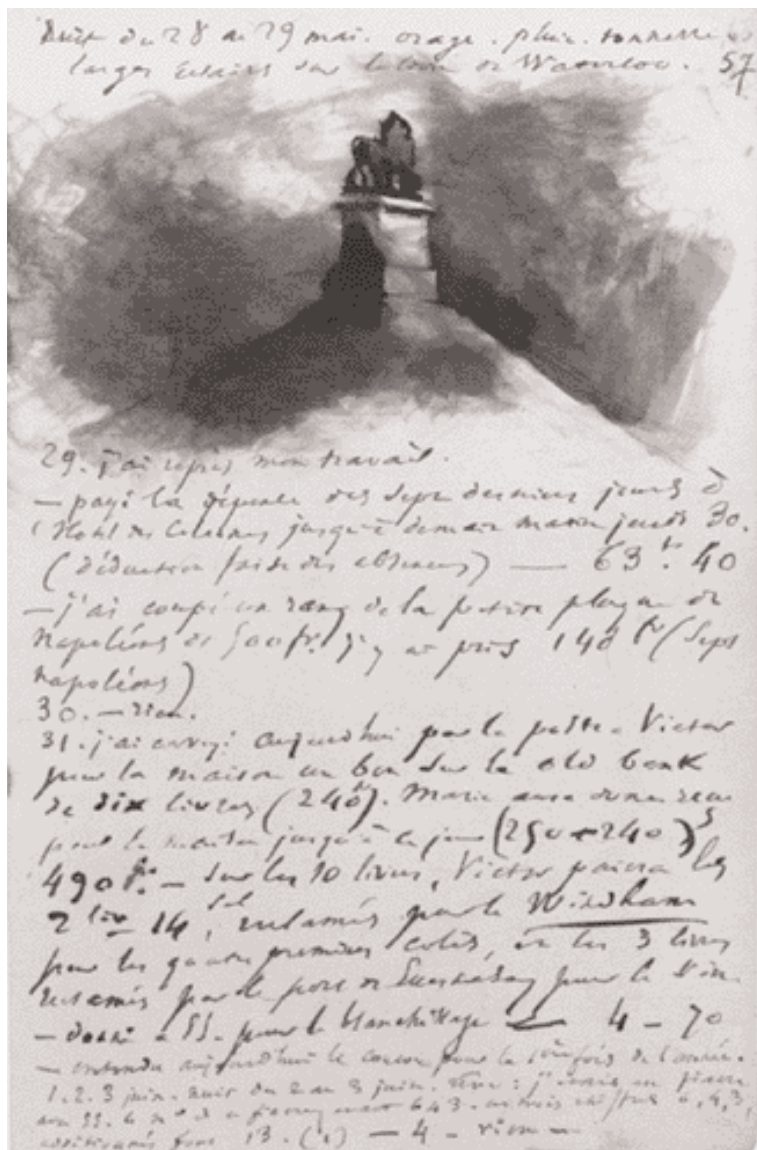 Nuit du 28 au 29 mai. orage. pluie. tonnerre
larges éclairs sur le lion de Waterloo. 57
29. j'ai repris mon travail.
— payé la dépense des sept derniers jours à
l'hôtel des Colonnes jusqu'à demain matin jeudi 30.
(déduction faite des absences) — 63 fr. 40
— j'ai coupé un rang de la petite plaque de
Napoléons de j'y ai pris 140 fr (sept
napoléons)
30. — rien.
31. j'ai envoyé aujourd'hui par la poste à Victor
pour la maison un bon sur la old bank
de dix livres (240 fr). Marie aura donc reçu
pour la maison jusqu'à ce jour (250 + 240)
490 fr. — sur les 10 livres, Victor paiera les
2 liv 14 sch réclamés par le Windham
pour les quatre premiers colis, et les 3 livres
réclamés par le port de Guernesey pour le vin.
— donné à SS. pour le blanchissage — 4 - 70
— entendu aujourd'hui le coucou pour la 1ère fois de l'année.
1. 2. 3 juin. nuit du 2 au 3 juin. rêve : j'étais en fiacre
avec SS. le n° du fiacre 643. 6, 4, 3,
additionnés font 13. (1) — 4 - rien —